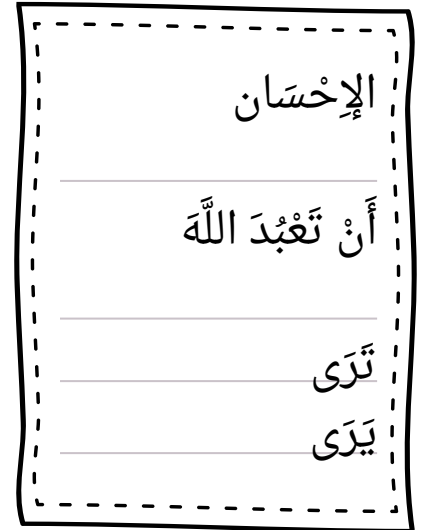 الإِحْسَان
أَنْ تَعْبُدَ اللَّهَ
تَرَى
يَرَى